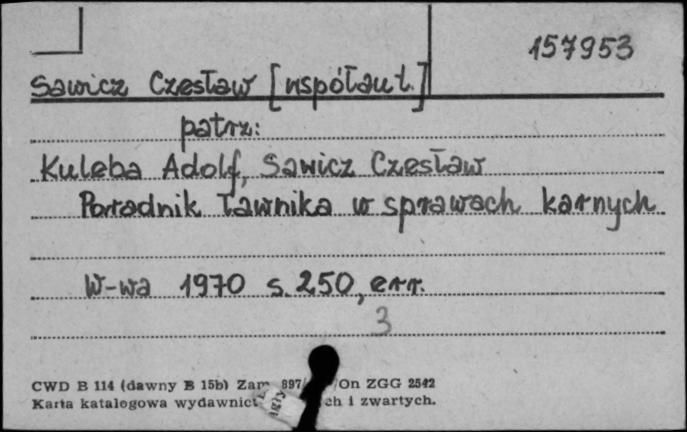 157953
Sawicz Czesław [współaut.]
patrz:
Kuleba Adolf, Sawicz Czesław
Poradnik ławnika w sprawach karnych
W-wa 1970 s. 250, err.
3
CWD B 114 (dawny B 15b) Zam. 897/ /On ZGG 2542
Karta katalogowa wydawnict ch i zwartych.